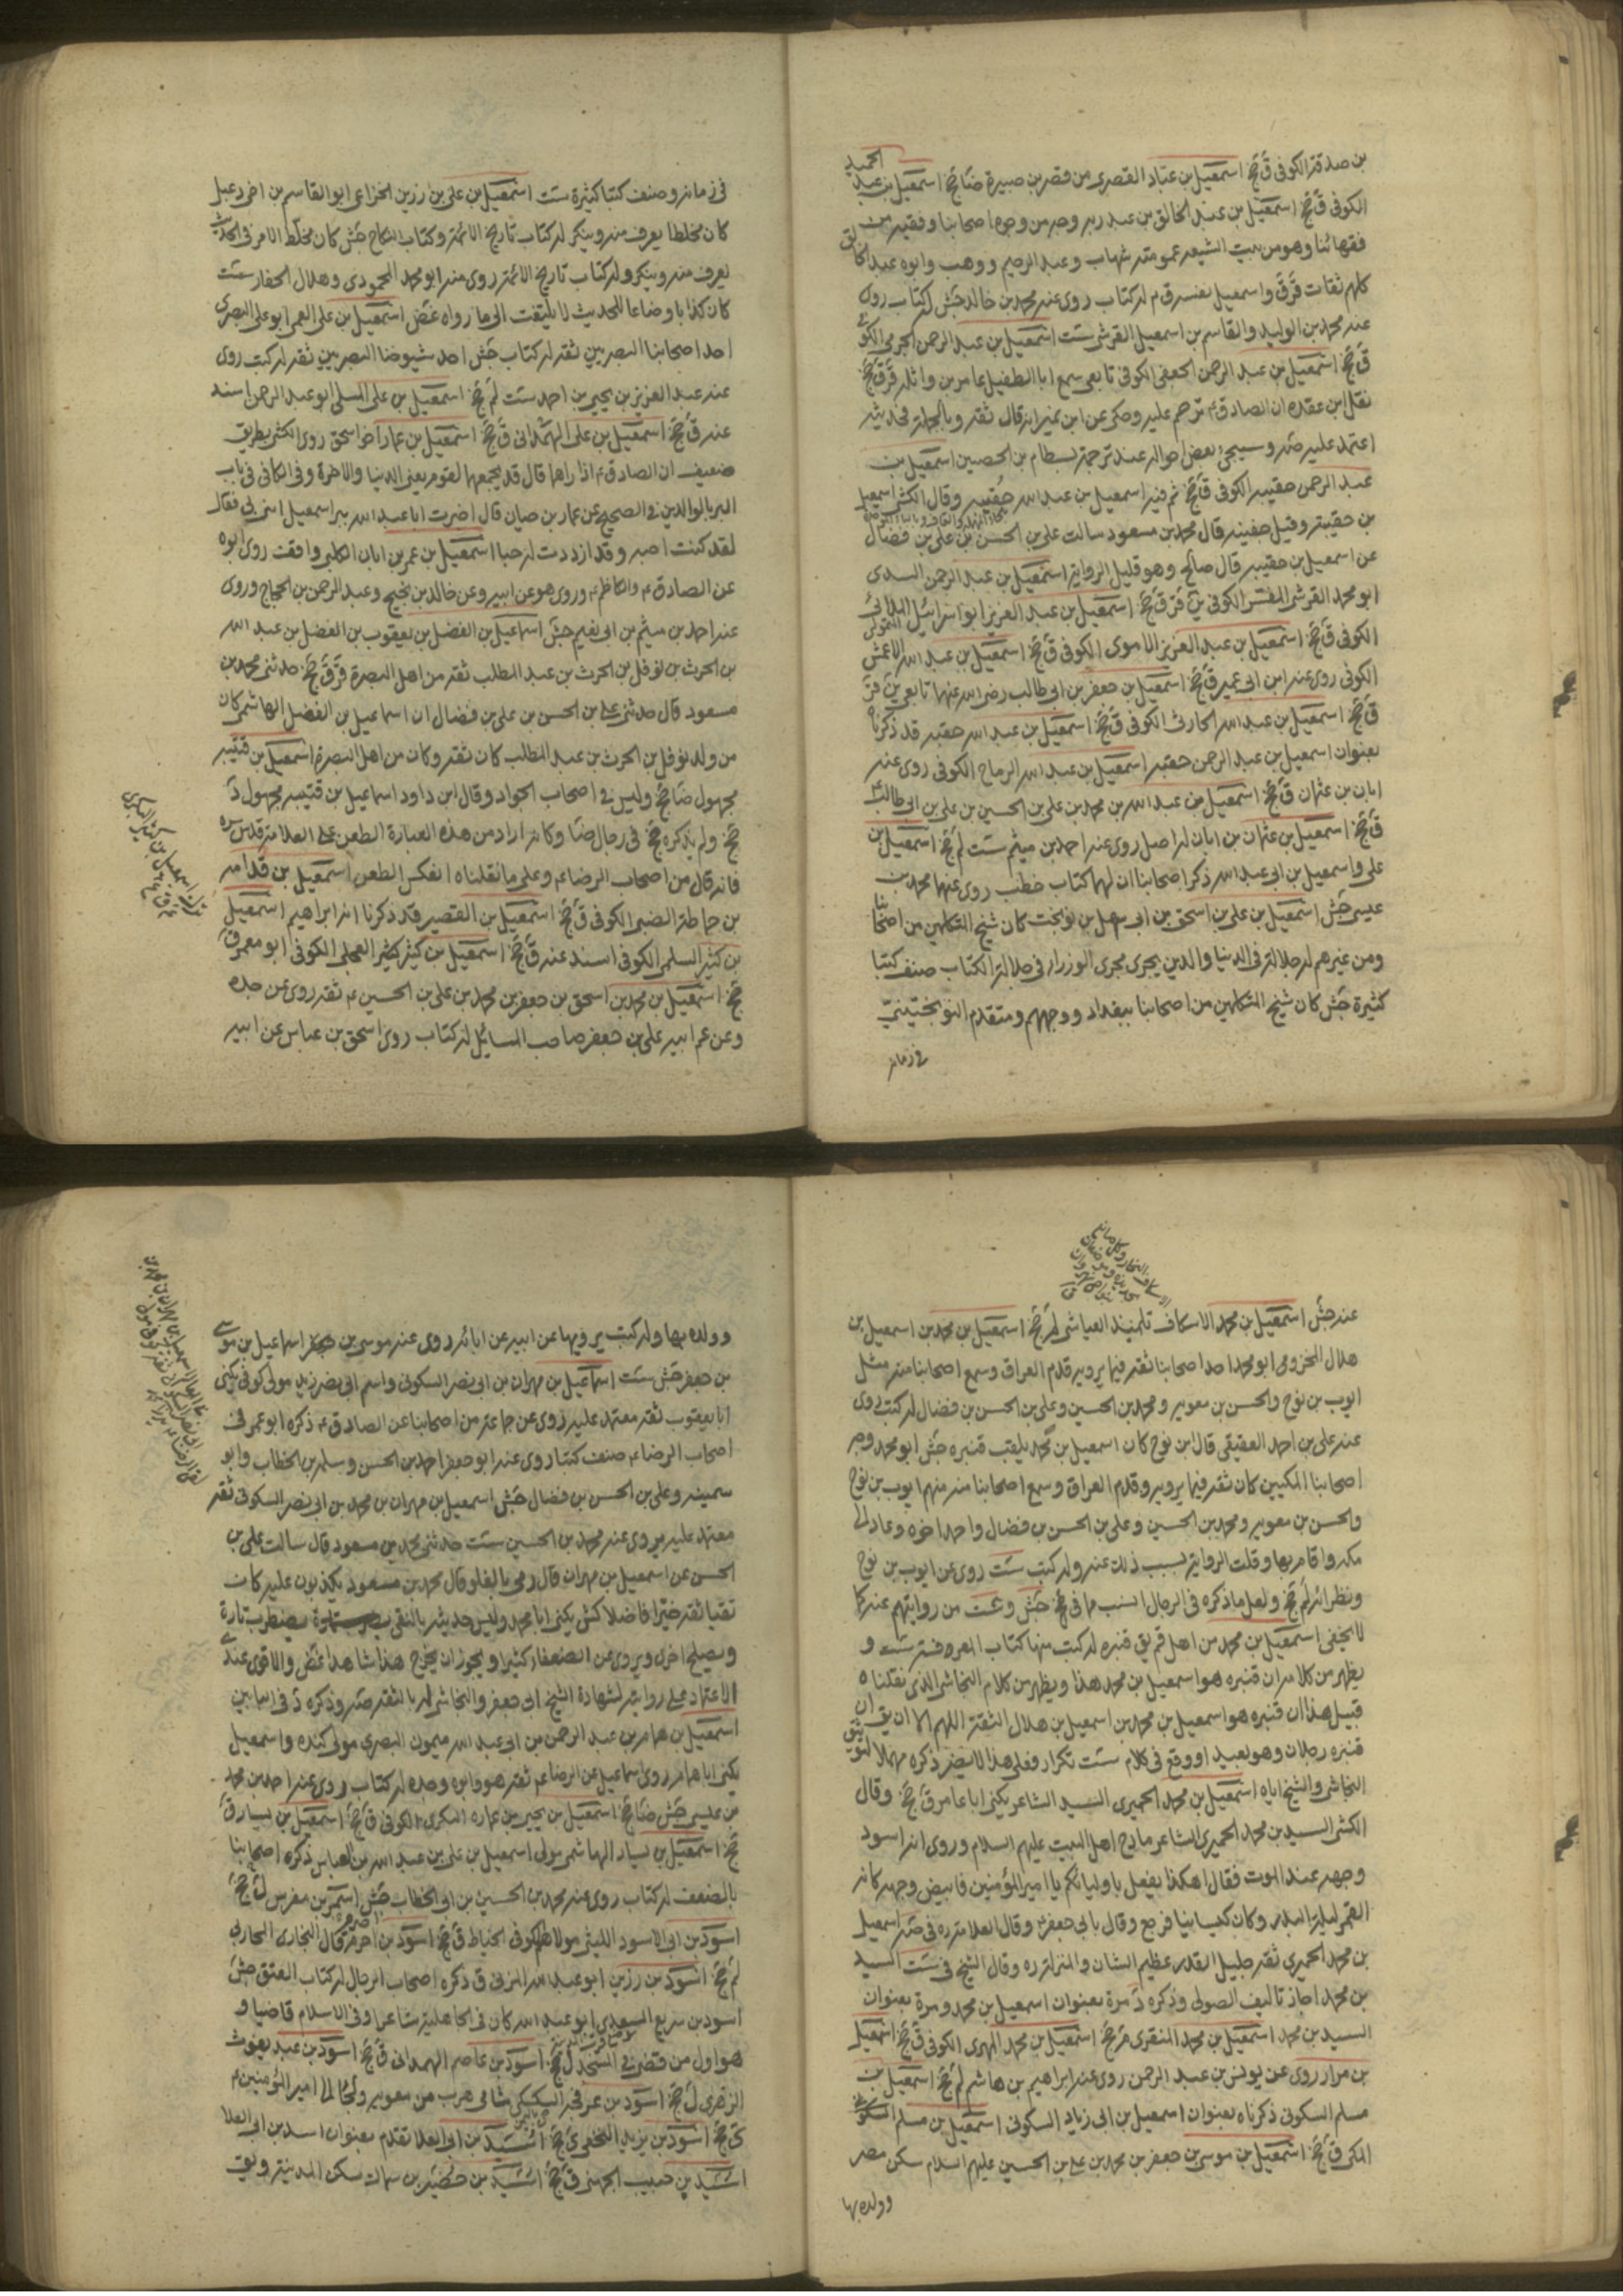 بن صدقة الكوفى ق جخ اسمعيل بن عباد القصرى من قصر بن هبيرة ضا جخ اسمعيل بن عبد الحميد
الكوفى ق جخ اسمعيل بن عبد الخالق بن عبد ربه وجه من وجوه اصحابنا وفقيه من
فقهائنا وهو من بيت الشيعه عمومته شهاب وعبد الرحيم ووهب وابوه عبد الخالق
كلهم ثقات ق ق واسمعيل نفسه ق م له كتاب روى عنه محمد بن خالد جش له كتاب روى
عنه محمد بن الوليد والقاسم بن اسمعيل القرشى ست اسمعيل بن عبد الرحمن الجرمى الكوفى
ق جخ اسمعيل بن عبد الرحمن الجعفى الكوفى تابعى سمع ابا الطفيل عامر بن واثله قر ق جخ
نقل ابن عقده ان الصادق ع ترحم عليه وحكى عن ابن نمير انه قال ثقه وبالجملة فحديثه
اعتمد عليه صه وسيجىء بعض احواله عند ترجمة بسطام بن الحصين اسمعيل بن
عبد الرحمن حقيبه الكوفى ق جخ ثم فيه اسمعيل بن عبد الله حقيبه وقال الكشى اسمعيل
بن حقيبه وقيل جفينه قال محمد بن مسعود سالت على بن الحسن بن على بن فضال
عن اسمعيل بن حقيبه قال صالح وهو قليل الرواية اسمعيل بن عبد الرحمن السدى
ابو محمد القرشى المفسر الكوفى ين قر ق جخ اسمعيل بن عبد العزيز ابو اسرائيل الملائى
الكوفى ق جخ اسمعيل بن عبد العزيز الاموى الكوفى ق جخ اسمعيل بن عبد الله الاعمش
الكوفى روى عنه ابن ابى عمير ق جخ اسمعيل بن جعفر بن ابى طالب رضى الله عنهما تابعى ين قر
ق جخ اسمعيل بن عبد الله الحارثى الكوفى ق جخ اسمعيل بن عبد الله حقيبه قد ذكرناه
بعنوان اسمعيل بن عبد الرحمن حقيبه اسمعيل بن عبد الله الرماح الكوفى روى عنه
ابان بن عثمان ق جخ اسمعيل بن عبد الله بن محمد بن على بن الحسين بن على بن ابى طالب ع
ق جخ اسمعيل بن عثمان بن ابان له اصل روى عنه احمد بن ميثم ست لم جخ اسمعيل بن
على واسمعيل بن ابى عبد الله ذكر اصحابنا ان لهما كتاب خطب روى عنهما محمد بن
عيسى جش اسمعيل بن على بن اسحق بن ابى سهل بن نوبخت كان شيخ المتكلمين من اصحابنا
ومن غيرهم له جلالة فى الدنيا والدين يجرى مجرى الوزراء فى جلالة الكتاب صنف كتبا
كثيرة جش كان شيخ المتكلمين من اصحابنا ببغداد ووجههم ومتقدم النوبختيين
فى زمانه
فى زمانه وصنف كتبا كثيرة ست اسمعيل بن على بن رزين الخزاعى ابو القاسم بن اخى دعبل
كان مختلطا يعرف منه وينكر له كتاب تاريخ الائمة وكتاب النكاح جش كان مختلط الامر فى الحديث
يعرف منه وينكر وله كتاب تاريخ الائمه روى عنه ابو محمد المحمودى وهلال الحفار ست
كان كذابا وضاعا للحديث لا يلتفت الى ما رواه غض اسمعيل بن على العمى ابو على البصرى
احد اصحابنا البصريين ثقه له كتاب جش احد شيوخنا البصريين ثقه له كتب روى
عنه عبد العزيز بن يحيى بن احمد ست لم جخ اسمعيل بن على المسلى ابو عبد الرحمن اسند
عنه ق جخ اسمعيل بن على الهمدانى ق جخ اسمعيل بن عمار اخو اسحق روى الكشى بطريق
ضعيف ان الصادق ع اذا راهما قال قد يجمعهما لقوم يعنى الدنيا والاخرة وفى الكافى فى باب
البر بالوالدين فى الصحيح عن عمار بن حيان قال اخبرت ابا عبد الله ببر اسمعيل ابنى بى فقال
لقد كنت احبه وقد ازددت له حبا اسمعيل بن عمر بن ابان الكلبى واقف روى ابوه
عن الصادق ع والكاظم ع وروى هو عن ابيه وعن خالد بن نجيح وعبد الرحمن بن الحجاج وروى
عنه احمد بن ميثم بن ابى نعيم جش اسماعيل بن الفضل بن يعقوب بن الفضل بن عبد الله
بن الحرث بن نوفل بن الحرث بن عبد المطلب ثقه من اهل البصرة قر ق جخ حدثنى محمد بن
مسعود قال حدثنى على بن الحسن بن على بن فضال ان اسماعيل بن الفضل الهاشمى كان
من ولد نوفل بن الحرث بن عبد المطلب كان ثقه وكان من اهل البصرة اسمعيل بن قتيبه
مجهول ضا جخ وليس فى اصحاب الجواد وقال ابن داود اسماعيل بن قتيبه مجهول د
جخ ولم يذكره جخ فى رجال ضا وكانه اراد من هذه العبارة الطعن على العلامة قدس سره
فانه قال من اصحاب الرضا ع وعلى ما نقلناه انعكس الطعن اسمعيل بن قدامه
بن حماطة الضبى الكوفى ق جخ اسمعيل بن القصير قد ذكرنا انه ابراهيم اسمعيل
بن كثير السلمى الكوفى اسند عنه ق جخ اسمعيل بن كثير العجلى الكوفى ابو معمر ق
جخ اسمعيل بن محمد بن اسحق بن جعفر بن محمد بن على بن الحسين ع ثقه روى عن جده
وعن عم ابيه على بن جعفر صاحب المسائل له كتاب روى اسحق بن عباس عن ابيه
عنه جش اسمعيل بن محمد الاسكاف تلميذ العياشى لم جخ اسمعيل بن محمد بن اسمعيل بن
هلال المخزومى ابو محمد احد اصحابنا ثقه فيما يرويه قدم العراق وسمع اصحابنا منه مثل
ايوب بن نوح والحسن بن معويه ومحمد بن الحسين وعلى بن الحسن بن فضال له كتب روى
عنه على بن احمد العقيقى قال ابن نوح كان اسمعيل بن محمد يلقب قنبره جش ابو محمد وجه
اصحابنا المكيين كان ثقه فيما يرويه وقدم العراق وسمع اصحابنا منه منهم ايوب بن نوح
والحسن بن معويه ومحمد بن الحسين وعلى بن الحسن بن فضال واحمد اخوه وعاد الى
مكه واقام بها وقلت الرواية بسبب ذلك عنه وله كتب ست روى عن ايوب بن نوح
ونظرائه لم جخ ولعل ما ذكره فى الرجال انسب مما فى جخ جش وست من روايتهم عنه كما
لا يخفى اسمعيل بن محمد من اهل قم يق قنبره له كتب منها كتاب المعرفة ست و
يظهر من كلامه ان قنبره هو اسمعيل بن محمد هذا ويظهر من كلام النجاشى الذى نقلناه
قبيل هذا ان قنبره هو اسمعيل بن محمد بن اسمعيل بن هلال الثقة اللهم الا ان يق ان
قنبره رجلان وهو بعيد او وقع فى كلام ست تكرار فعلى هذا لا يضر ذكره مهملا لتوثيق
النجاشى والشيخ اياه اسمعيل بن محمد الحميرى السيد الشاعر يكنى ابا عامر ق جخ وقال
الكشى السيد بن محمد الحميرى الشاعر مادح اهل البيت عليهم السلام وروى انه اسود
وجهه عند الموت فقال اهكذا يفعل باوليائكم يا امير المؤمنين فابيض وجهه كانه
القمر ليلة البدر وكان كيسانيا فرجع وقال بابى جعفر ع وقال العلامة ره فى صه اسمعيل
بن محمد الحميرى ثقه جليل القدر عظيم الشان والمنزلة ره وقال الشيخ فى ست السيد
بن محمد اخباره تاليف الصولى وذكره د مرة بعنوان اسمعيل بن محمد ومرة بعنوان
السيد بن محمد اسمعيل بن محمد المنقرى قر جخ اسمعيل بن محمد المهرى الكوفى ق جخ اسمعيل
بن مرار روى عن يونس بن عبد الرحمن روى عنه ابراهيم بن هاشم لم جخ اسمعيل بن
مسلم السكونى ذكرناه بعنوان اسمعيل بن ابى زياد السكونى اسمعيل بن مسلم السكونى
المكى ق جخ اسمعيل بن موسى بن جعفر بن محمد بن على بن الحسين عليهم السلام سكن مصر
وولده بها
وولده بها وله كتب يرويها عن ابيه عن ابائه روى عنه موسى بن اسماعيل بن موسى
بن جعفر جش ست اسماعيل بن مهران بن ابى نصر السكونى واسم ابى نصر زيد مولى كوفى يكنى
ابا يعقوب ثقه معتمد عليه روى عن جماعة من اصحابنا عن الصادق ع ذكره ابو عمرو فى
اصحاب الرضا ع صنف كتبا روى عنه ابو جعفر احمد بن الحسن وسلمه بن الخطاب وابو
سمينه وعلى بن الحسن بن فضال جش اسمعيل بن مهران بن محمد بن ابى نصر السكونى ثقه
معتمد عليه يروى عنه محمد بن الحسين ست حدثنى محمد بن مسعود قال سالت على بن
الحسن عن اسمعيل بن مهران قال رمى بالغلو قال محمد بن مسعود يكذبون عليه كان
تقيا ثقه خيرا فاضلا كش يكنى ابا محمد وليس حديثه بالنقى يضطرب تارة
ويصلح اخرى ويروى عن الضعفاء كثيرا ويجوز ان يخرج هذا شاهدا غض والاقوى عندى
الاعتماد على روايته لشهادة الشيخ ابى جعفر والنجاشى له بالثقه صه وذكره د فى البابين
اسمعيل بن همام بن عبد الرحمن بن ابى عبد الله ميمون البصرى مولى كنده واسمعيل
يكنى ابا همام روى اسماعيل عن الرضا ع ثقه هو وابوه وجده له كتاب روى عنه احمد بن محمد
بن عيسى جش ضا جخ اسمعيل بن يحيى بن عماره البكرى الكوفى ق جخ اسمعيل بن يسار ق
جخ اسمعيل بن يسار الهاشمى مولى اسمعيل بن على بن عبد الله بن العباس ذكره اصحابنا
بالضعف له كتاب روى عنه محمد بن الحسين بن ابى الخطاب جش اسمر بن مضرس ل جخ
اسود بن ابى الاسود الليثى مولاهم كوفى الخياط ق جخ اسود بن احرم قال البخارى المحاربى
ل جخ اسود بن رزين ابو عبد الله المزنى ق ذكره اصحاب الرجال له كتاب العتق جش
اسود بن سريع السعدى ابو عبد الله كان فى الجاهلية شاعرا وفى الاسلام قاضيا و
هو اول من قضى فى المسجد ل جخ اسود بن عاصم الهمدانى ق جخ اسود بن عبد يغوث
الزهرى ل جخ اسود بن عرفجة السكسكى شامى هرب من معويه ولجأ الى امير المؤمنين ع
ى جخ اسود بن يزيد النخعى ى جخ اسيد بن ابى العلا تقدم بعنوان اسد بن ابى العلا
اسيد بن حبيب الجهنى ق جخ اسيد بن حضير بن سماك سكن المدينة ويق